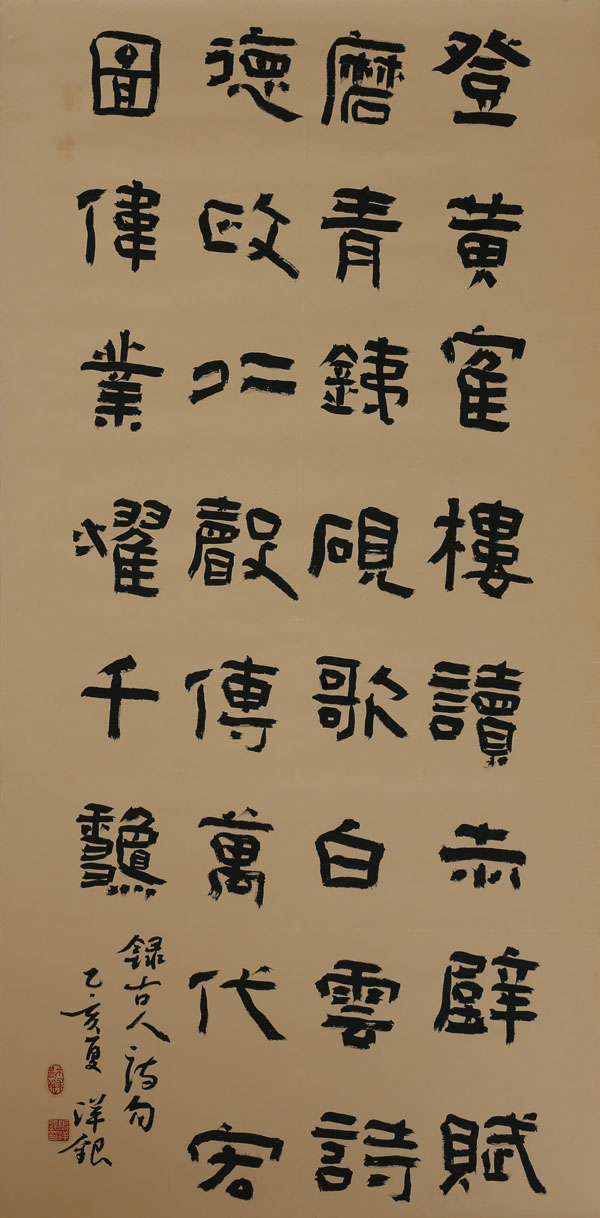 登黃寉樓讀赤壁賦
磨青銕硯歌白雲詩
德政仁聲傳萬代宏
圖偉業耀千
録古人詩句
乙亥夏 洋銀